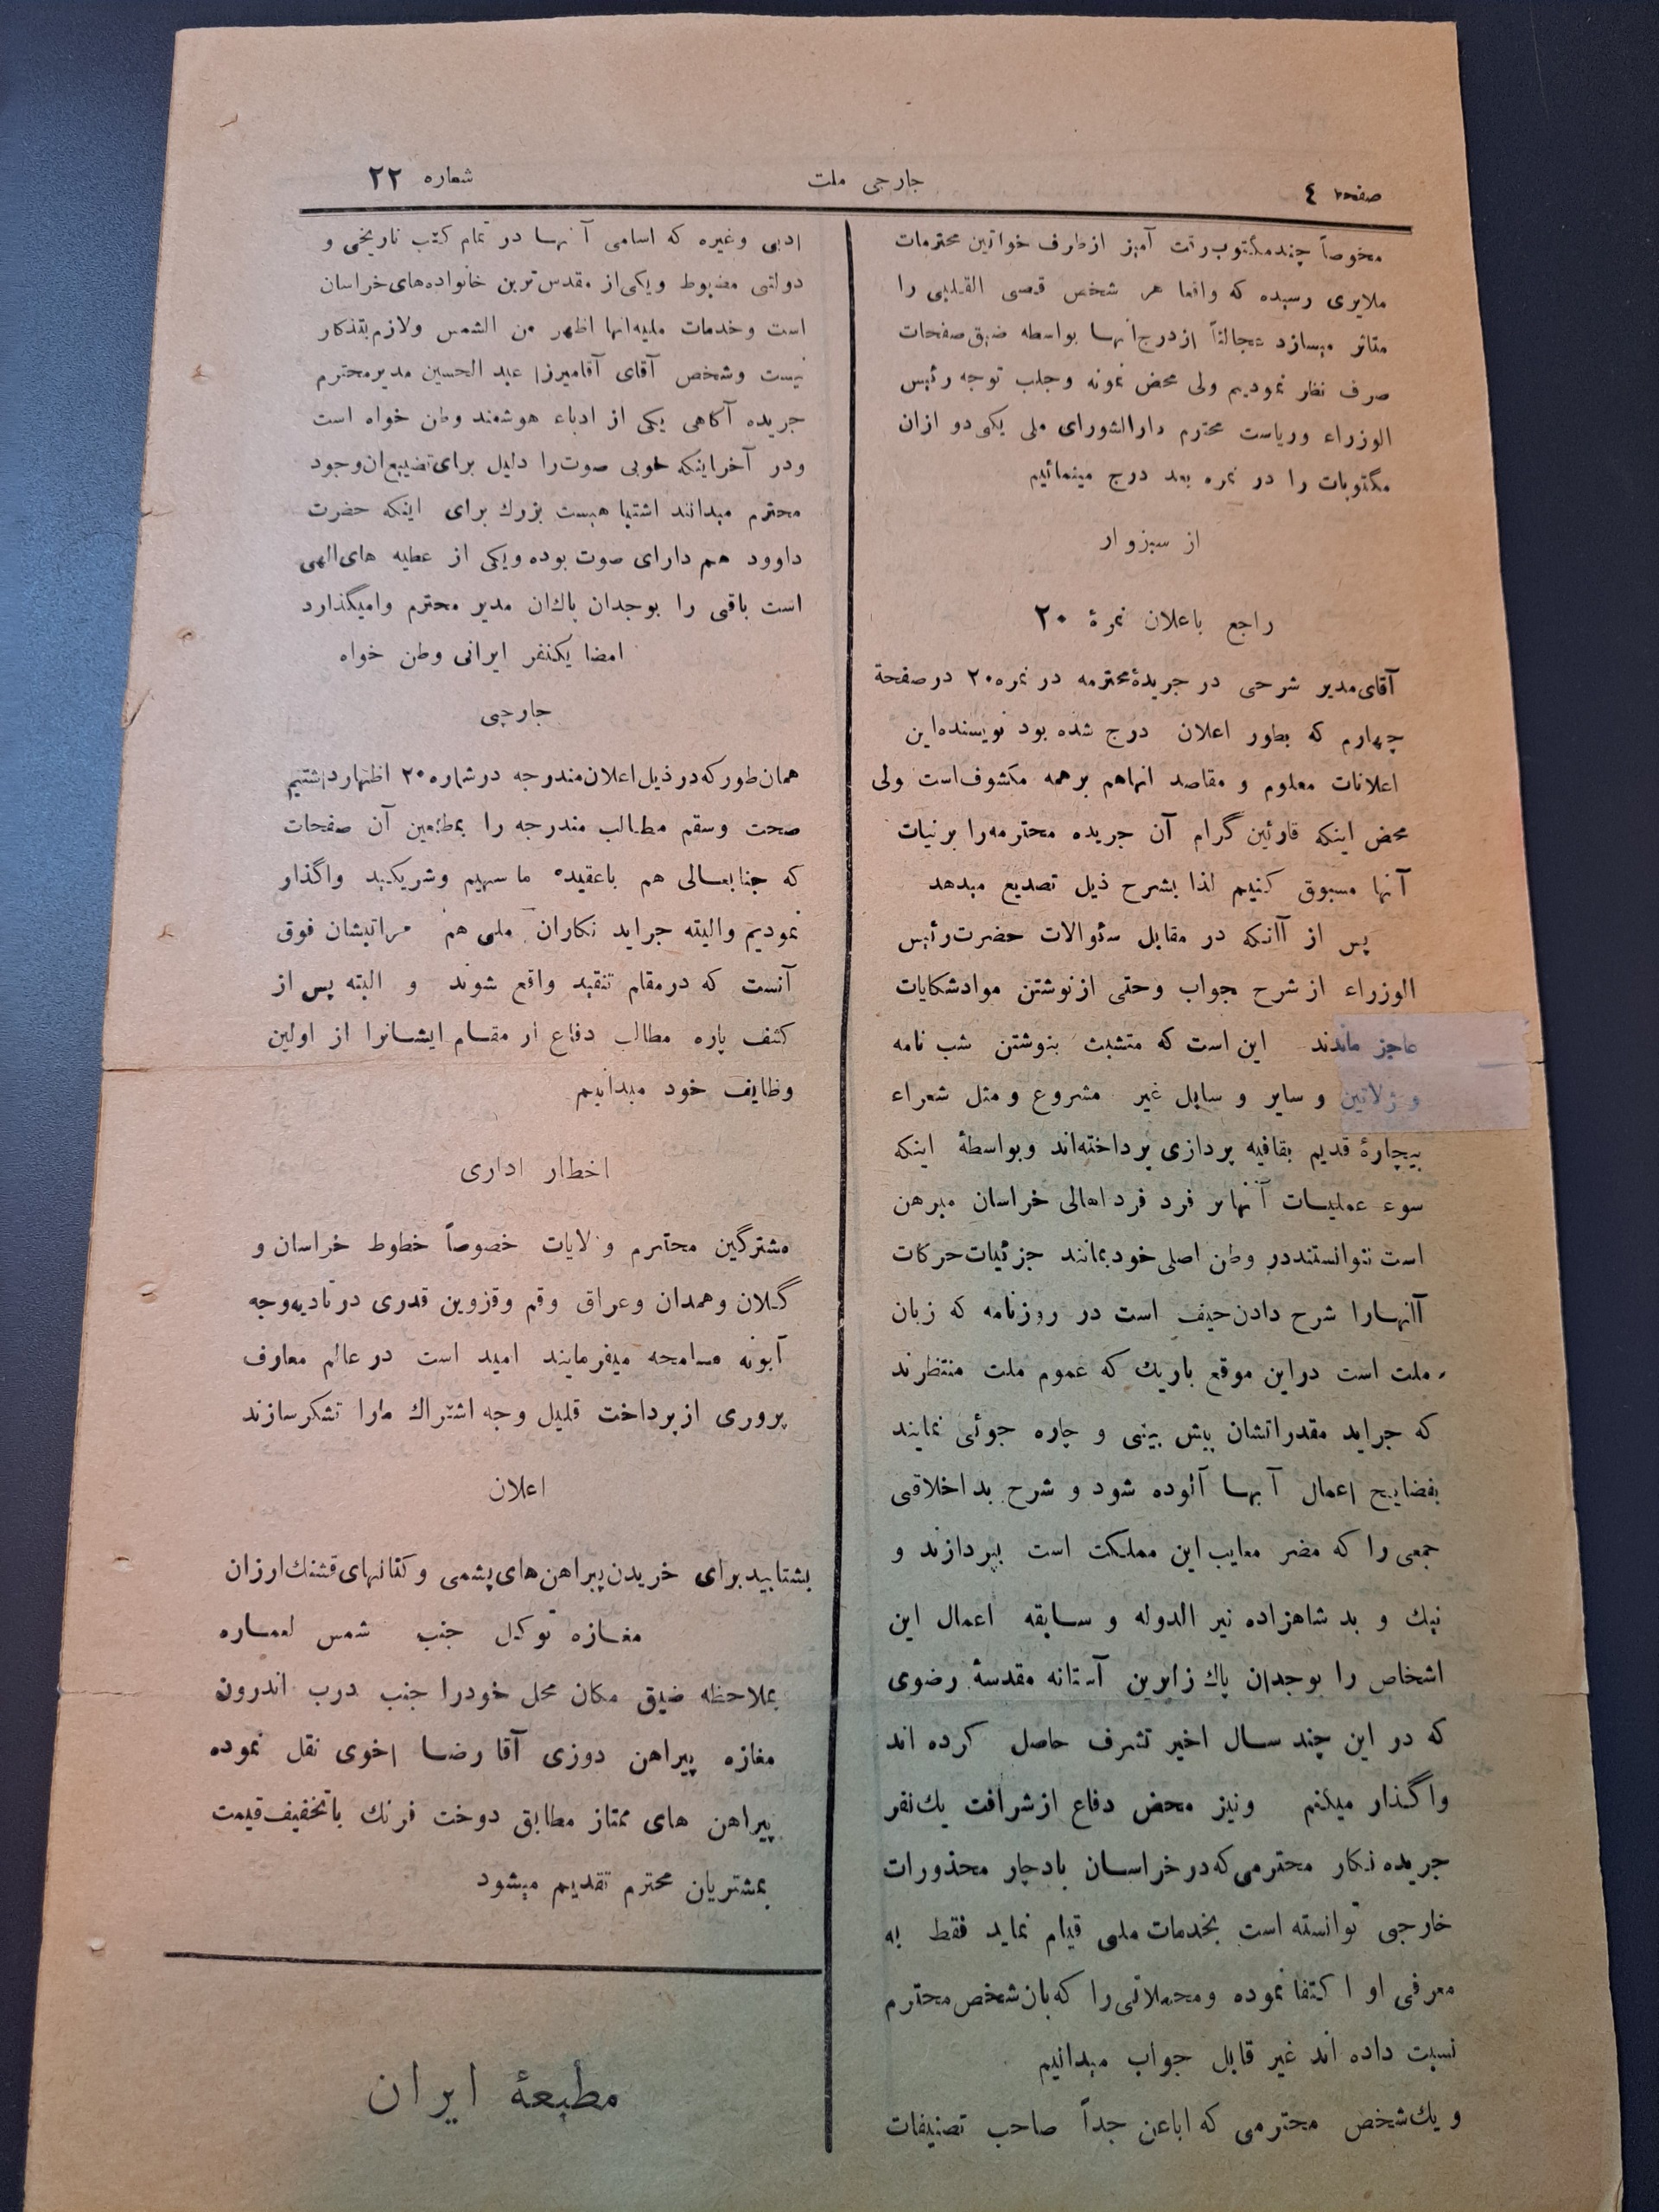 صفحه ٤
جارچی ملت
شماره ٢٢
مخوصاً چند مکتوب رقت آمیز از طرف خواتین محترمات
ملایری رسیده که واقعا هر شخص قسی القلبی را
متاثر میسازد عجالتاً از درج آنها بواسطه ضیق صفحات
صرف نظر نمودیم ولی محض نمونه و جلب توجه رئیس
الوزراء و ریاست محترم دارالشورای ملی یکی دو ازان
مکتوبات را در نمره بعد درج مینمائیم
از سبزوار
راجع باعلان نمرۀ ۲۰
آقای مدیر شرحی در جریدۀ محترمه در نمره ۲۰ در صفحۀ
چهارم که بطور اعلان درج شده بود نویسنده این
اعلانات معلوم و مقاصد انها هم بر همه مکشوف است ولی
محض اینکه قارئین گرام آن جریده محترمه را بر نیات
آنها مسبوق کنیم لذا بشرح ذیل تصدیع میدهد
پس از آنکه در مقابل سئوالات حضرت رئیس
الوزراء از شرح جواب و حتی از نوشتن مواد شکایات
عاجز ماندند این است که متشبث بنوشتن شب نامه
و ژلاتین و سایر و سایل غیر مشروع و مثل شعراء
بیچارۀ قدیم بقافیه پردازی پرداخته‌اند و بواسطۀ اینکه
سوء عملیات آنها بر فرد فرد اهالی خراسان مبرهن
است نتوانستند در وطن اصلی خود بمانند جزئیات حرکات
آنها را شرح دادن حیف است در روزنامه که زبان
ملت است در این موقع باریك که عموم ملت منتظرند
که جراید مقدراتشان پیش بینی و چاره جوئی نمایند
بفضایح اعمال آنها آلوده شود و شرح بد اخلاقی
جمعی را که مضر معایب این مملکت است بپردازند و
نیك و بد شاهزاده نیر الدوله و سابقه اعمال این
اشخاص را بوجدان پاك زایرین آستانه مقدسۀ رضوی
که در این چند سال اخیر تشرف حاصل کرده اند
واگذار میکنم ونیز محض دفاع از شرافت یك نفر
جریده نگار محترمی که در خراسان بادچار محذورات
خارجی توانسته است بخدمات ملی قیام نماید فقط به
معرفی او اکتفا نموده و مجهلاتی را که بان شخص محترم
نسبت داده اند غیر قابل جواب میدانیم
و یك شخص محترمی که اباعن جداً صاحب تصنیفات
ادبی وغیره که اسامی آنها در تمام کتب تاریخی و
دولتی مضبوط ویکی از مقدس ترین خانواده های خراسان
است و خدمات ملیه انها اظهر من الشمس و لازم بتذکار
نیست و شخص آقای آقامیرزا عبد الحسین مدیر محترم
جریده آگاهی یکی از ادباء هوشمند وطن خواه است
ودر آخر اینکه خوبی صوت را دلیل برای تضییع ان وجود
محترم میدانند اشتباهیست بزرك برای اینکه حضرت
داوود هم دارای صوت بوده ویکی از عطیه های الهی
است باقی را بوجدان پاك ان مدیر محترم وامیگذارد
امضا یکنفر ایرانی وطن خواه
جارچی
همان طور که در ذیل اعلان مندرجه در شماره ۲۰ اظهار داشتیم
صحت وسقم مطالب مندرجه را بمطلعین آن صفحات
که جنابعالی هم باعقیده ما سهیم وشریکید واگذار
نمودیم والبته جراید نگاران ملی هم مراتبشان فوق
آنست که در مقام تنقید واقع شوند و البته پس از
کشف پاره مطالب دفاع از مقام ایشانرا از اولین
وظایف خود میدانیم
اخطار اداری
مشترکین محترم ولایات خصوصاً خطوط خراسان و
گیلان وهمدان وعراق وقم وقزوین قدری در تادیه وجه
آبونه مسامحه میفرمایند امید است در عالم معارف
پروری از پرداخت قلیل وجه اشتراك مارا تشکر سازند
اعلان
بشتابید برای خریدن پیراهن های پشمی وکتانهای قشنك ارزان
مغازه توکیل جنب شمس لعماره
بملاحظه ضیق مکان محل خودرا جنب درب اندرون
مغازه پیراهن دوزی آقا رضا اخوی نقل نموده
پیراهن های ممتاز مطابق دوخت فرنك با تخفیف قیمت
بمشتریان محترم تقدیم میشود
مطبعۀ ایران